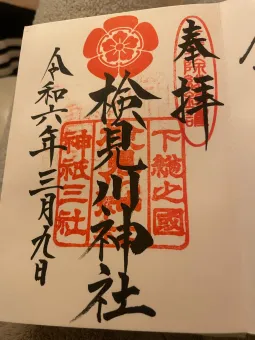 奉拝
下総之國
検見川神社
神祇三社
令和六年三月九日